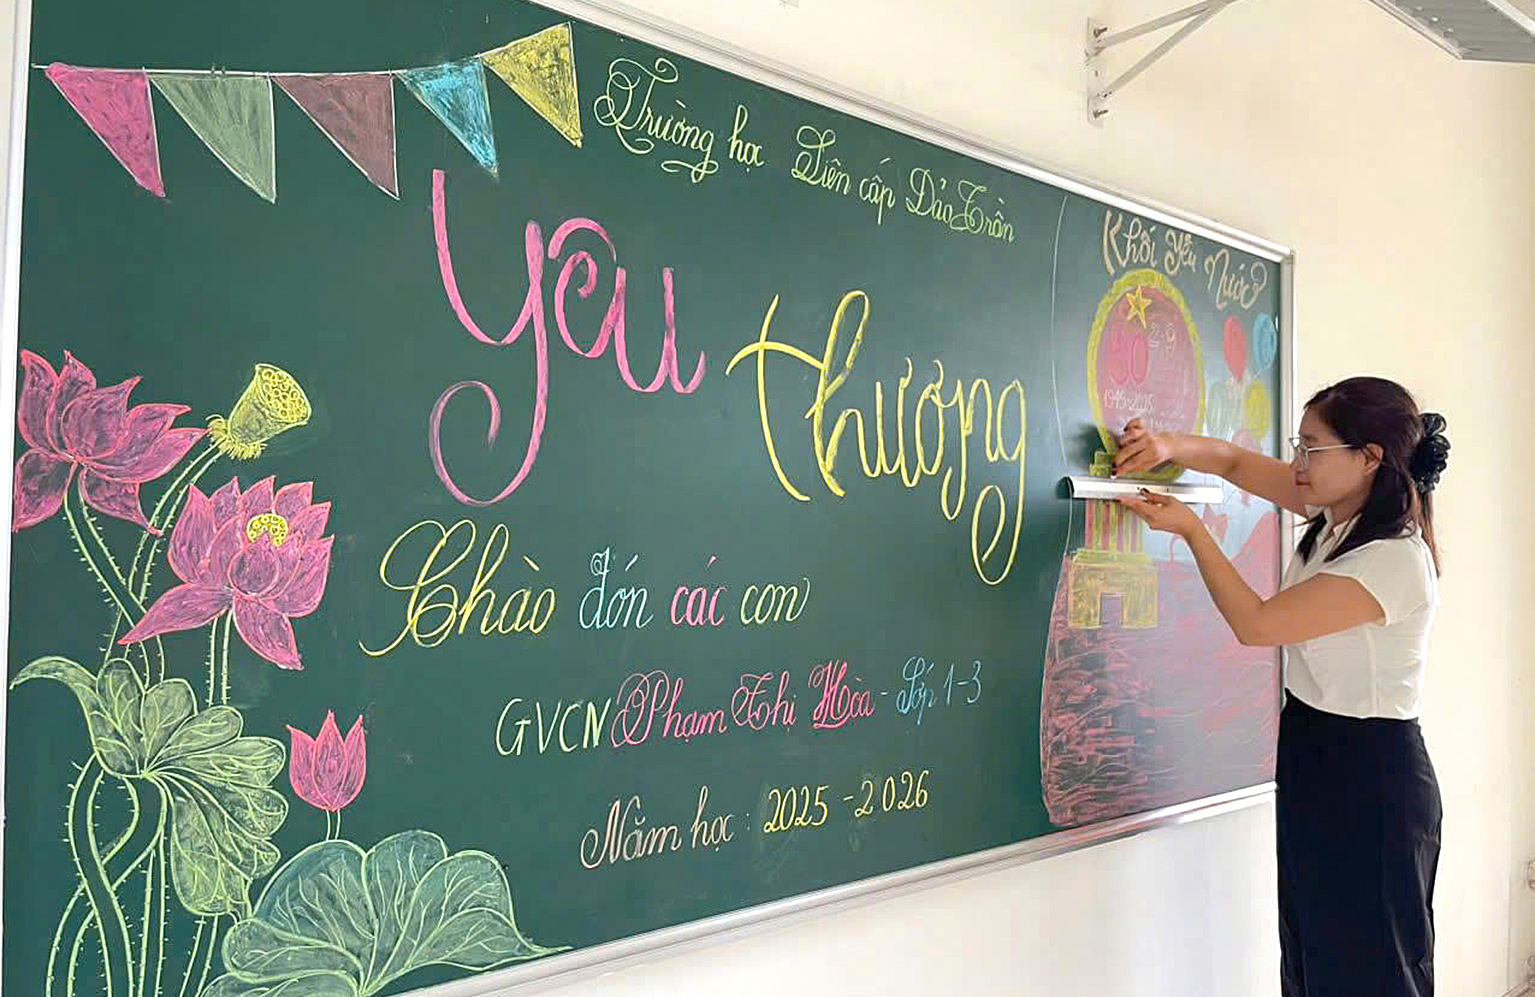 Trường học Liên cấp Đảo Trần
Yêu thương
Chào đón các con
GVCN Phạm Thị Hòa - Lớp 1-3
Năm học : 2025 - 2026
Khối Yêu Nước
80 2-9
1945-2025